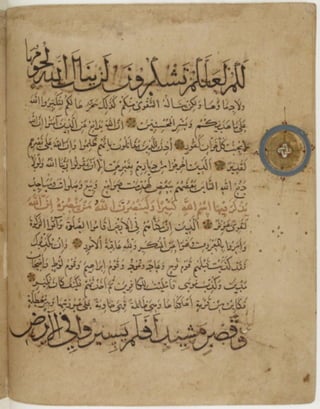 لكم لعلكم تشكرون لن ينال الله لحومها
ولا دماؤها ولكن يناله التقوى منكم كذلك سخرها لكم لتكبروا الله
على ما هديكم وبشر المحسنين ان الله يدافع عن الذين امنوا ان الله
لا يحب كل خوان كفور اذن للذين يقاتلون بانهم ظلموا وان الله على نصرهم
لقدير الذين اخرجوا من ديارهم بغير حق الا ان يقولوا ربنا الله ولولا
دفع الله الناس بعضهم ببعض لهدمت صوامع وبيع وصلوات ومساجد
يذكر فيها اسم الله كثيرا ولينصرن الله من ينصره ان الله
لقوي عزيز الذين ان مكناهم في الارض اقاموا الصلوة واتوا الزكوة
وامروا بالمعروف ونهوا عن المنكر ولله عاقبة الامور وان يكذبوك
فقد كذبت قبلهم قوم نوح وعاد وثمود وقوم ابراهيم وقوم لوط واصحاب
مدين وكذب موسى فامليت للكافرين ثم اخذتهم فكيف كان نكير
فكاين من قرية اهلكناها وهي ظالمة فهي خاوية على عروشها وبئر معطلة
وقصر مشيد افلم يسيروا في الارض